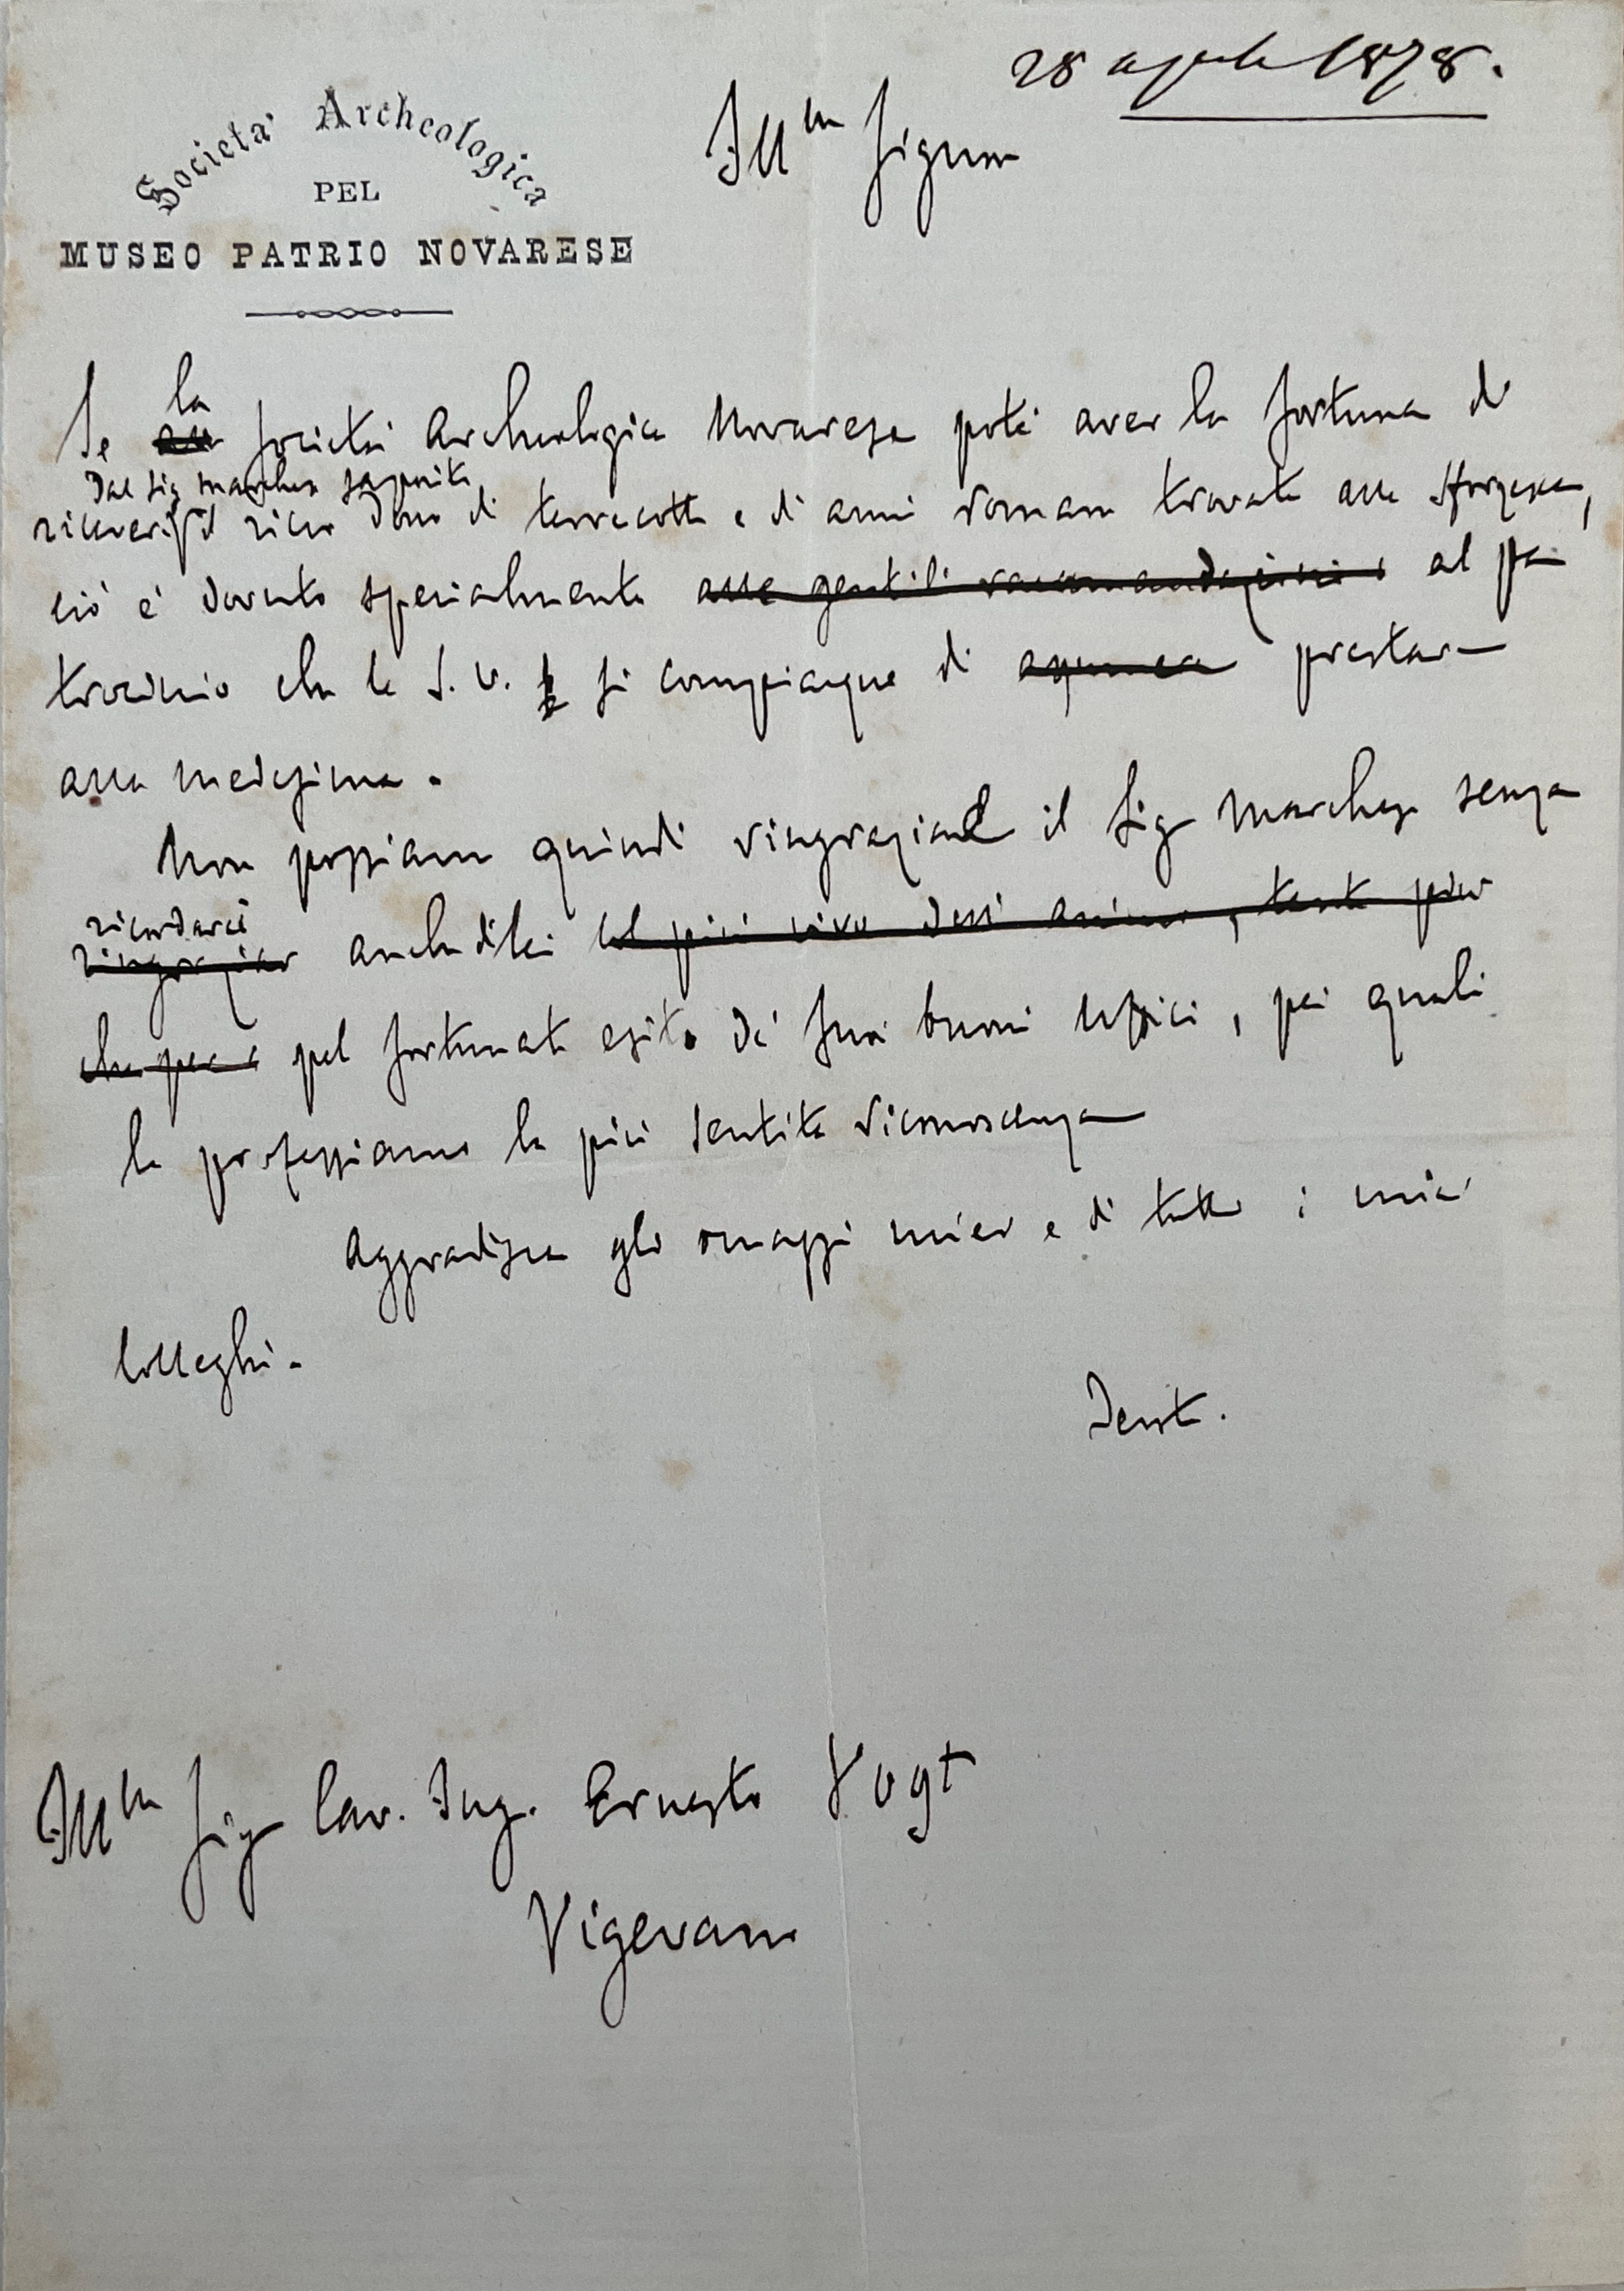 28 aprile 1878.
Società Archeologica
PEL
MUSEO PATRIO NOVARESE
Ill.mo Signore
Se la Società Archeologica Novarese poté aver la fortuna di
dal sig marchese Saporiti
ricevere il ricco dono di terrecotte e di armi romane trovate alla Sforzesca,
ciò è dovuto specialmente alle gentili raccomandazioni al pa
trocinio che la S. V. si compiacque di prestare
alla medesima.
Non possiamo quindi ringraziare il Sig Marchese senza
ricordarci
ringraziar anche di lei col più vivo dell'animo, tanto più
che per pel fortunato esito de' suoi buoni uffici, pei quali
le professiamo la più sentita riconoscenza
Aggradisca gli omaggi miei e di tutti i miei
Colleghi.
Devot.
Ill.mo Sig Cav. Ing. Ernesto Vogt
Vigevano